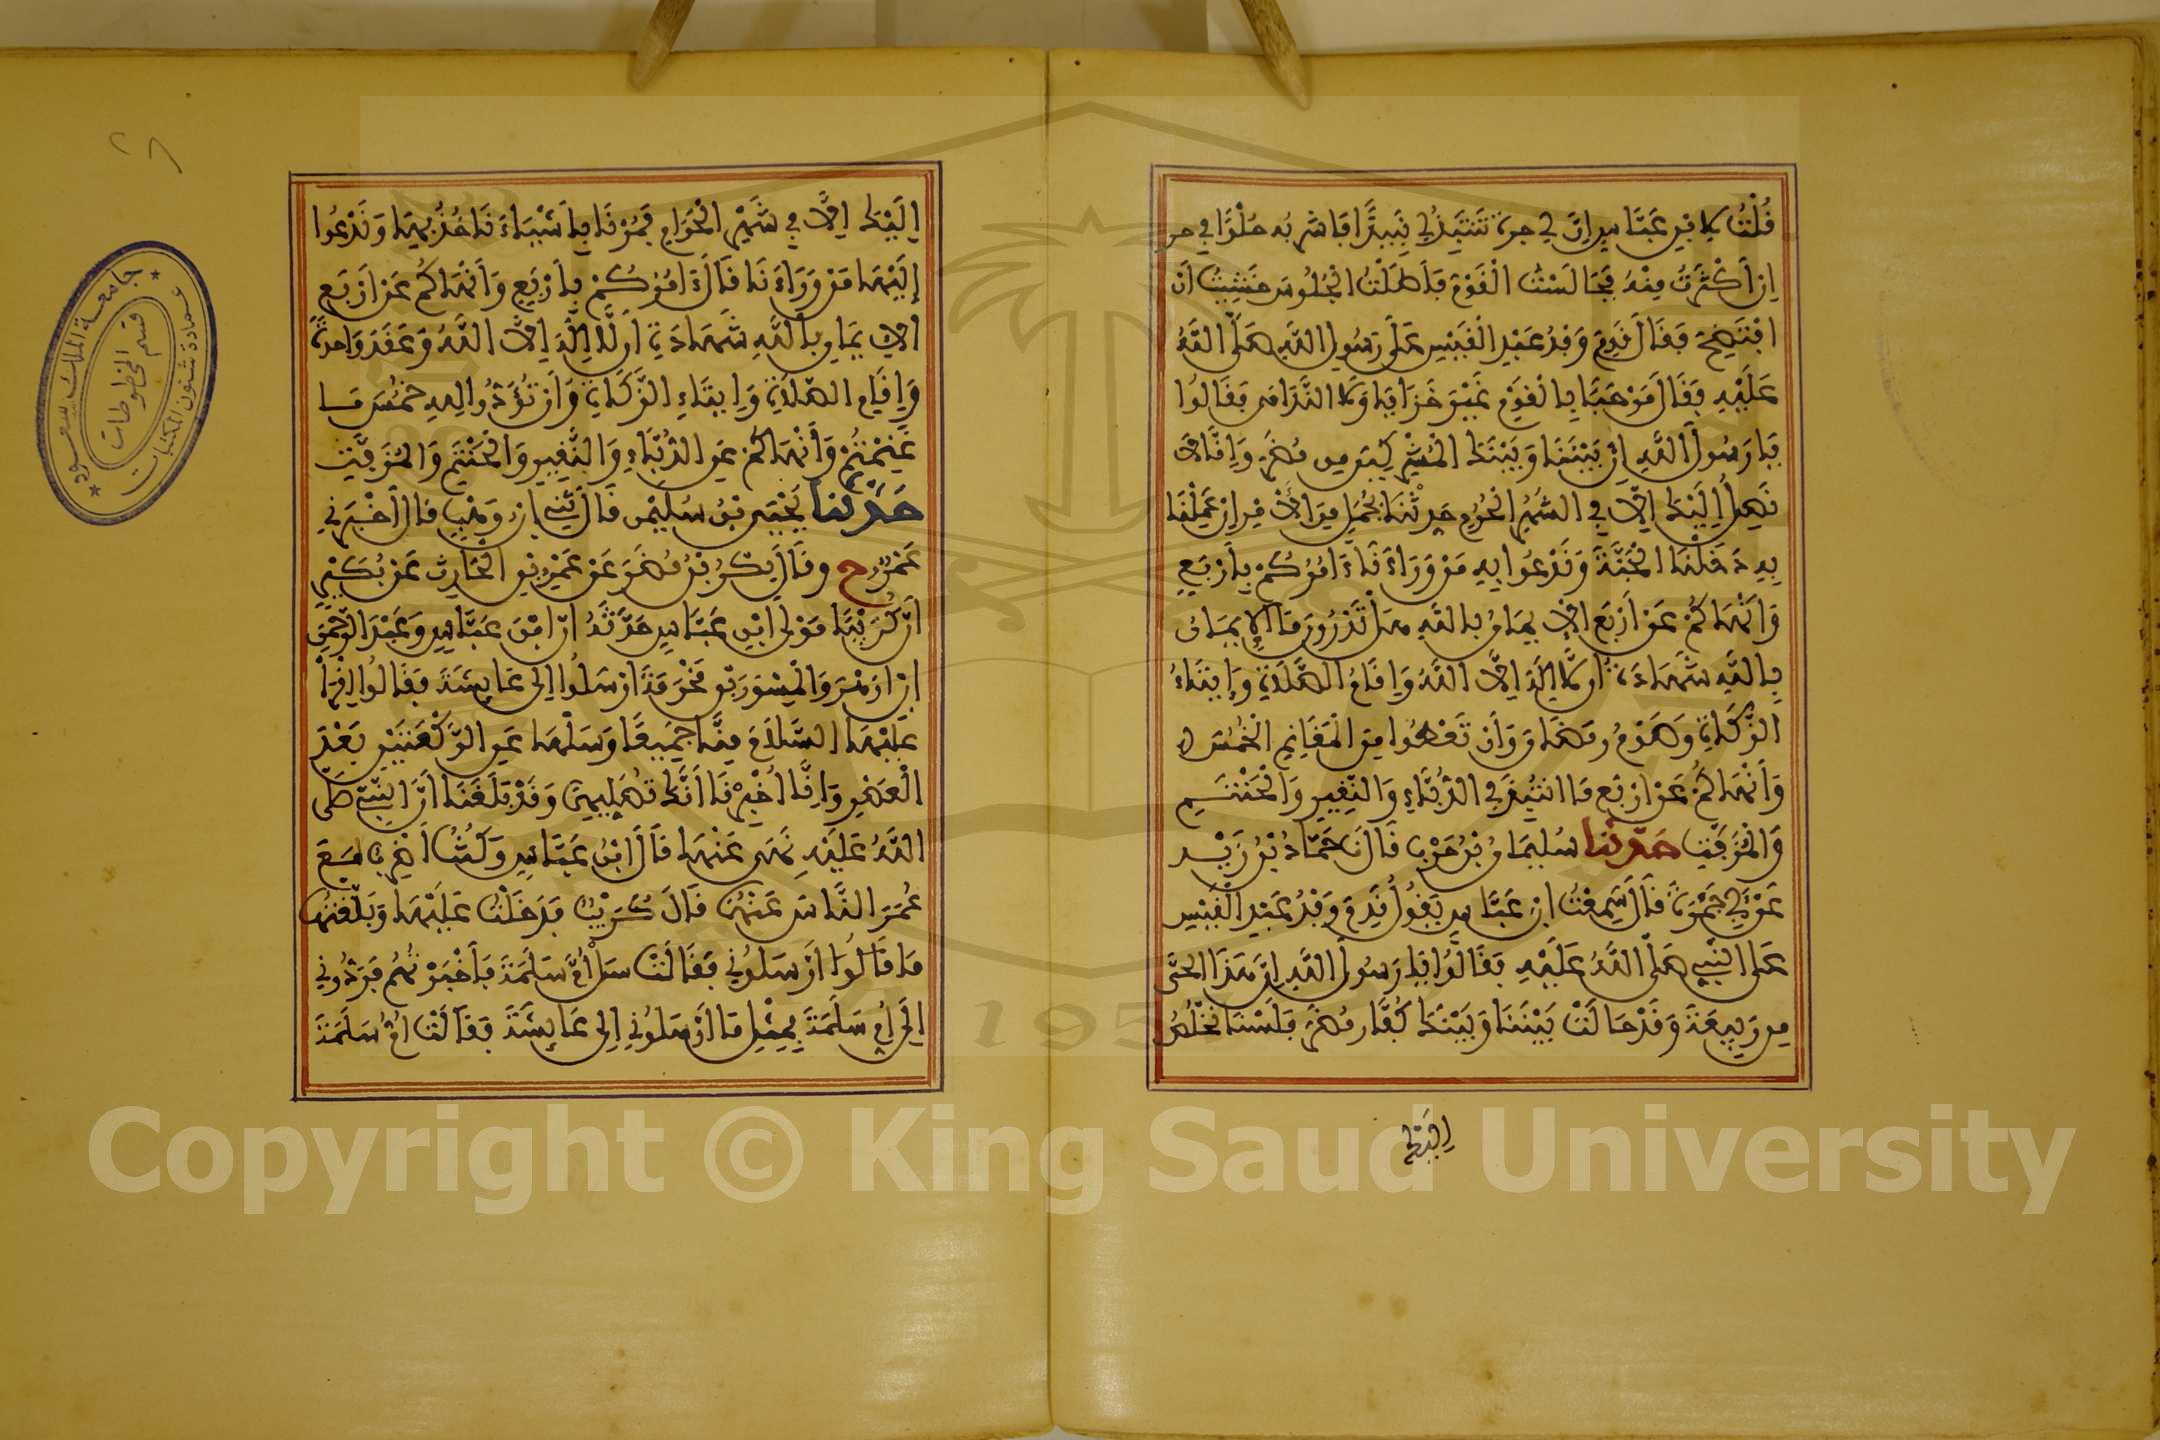 قُلْتُ لِابْنِ عَبَّاسٍ اِنَّ لِي جرة تَنْتَبِذُ لِي نَبِيذًا فَأَشْرَبُهُ حُلْوًا فِي جر
اِنْ أَكْثَرْتُ مِنْهُ فَجَالَسْتُ الْقَوْمَ فَأَطَلْتُ الْجُلُوسَ خَشِيتُ أَنْ
افْتَضِحَ فَقَالَ قَدِمَ وَفْدُ عَبْدِ الْقَيْسِ عَلَى رَسُولِ اللَّهِ صَلَّى اللَّهُ
عَلَيْهِ فَقَالَ مَرْحَبًا بِالْقَوْمِ غَيْرَ خَزَايَا وَلَا النَّدَامَى فَقَالُوا
يَا رَسُولَ اللَّهِ اِنَّ بَيْنَنَا وَبَيْنَكَ الْمُشْرِكِينَ مِن مُضَرَ وَإِنَّا لَا
نَصِلُ اِلَيْكَ اِلَّا فِي الشَّهْرِ الْحُرُمِ حَدِّثْنَا بِجُمَلٍ مِنَ الْأَمْرِ اِنْ عَمِلْنَا
بِهِ دَخَلْنَا الْجَنَّةَ وَنَدْعُوا بِهِ مَنْ وَرَاءَنَا قَالَ آمُرُكُمْ بِأَرْبَعٍ
وَأَنْهَاكُمْ عَنْ أَرْبَعٍ الْإِيمَانُ بِاللَّهِ هَلْ تَدْرُونَ مَا الْإِيمَانُ
بِاللَّهِ شَهَادَةُ أَن لَّا اِلَهَ اِلَّا اللَّهُ وَإِقَامُ الصَّلَاةِ وَإِيتَاءُ
الزَّكَاةِ وَصَوْمُ رمَضَانَ وَأَنْ تُعْطُوا مِنَ الْمَغَانِمِ الْخُمُسَ
وَأَنْهَاكُمْ عَنْ أَرْبَعٍ مَا انْتُبِذَ فِي الدُّبَّاءِ وَالنَّقِيرِ وَالْحَنْتَمِ
وَالْمُزَفَّتِ حَدَّثَنَا سُلَيْمَانُ بْنُ حَرْبٍ قَالَ نَا حَمَّادُ بْنُ زَيْدٍ
عَنْ أَبِي جَمْرَةَ قَالَ سَمِعْتُ ابْنَ عَبَّاسٍ يَقُولُ قَدِمَ وَفْدُ عَبْدِ الْقَيْسِ
عَلَى النَّبِيِّ صَلَّى اللَّهُ عَلَيْهِ فَقَالُوا يَا رَسُولَ اللَّهِ اِنَّ هَذَا الْحَيَّ
مِن رَبِيعَةَ وَقَدْ حَالَتْ بَيْنَنَا وَبَيْنَكَ كُفَّارُ مُضَرَ فَلَسْنَا نَخْلُصُ
اِلَيْكَ
اِلَيْكَ اِلَّا فِي شَهْرِ الْحَرَامِ فَمُرْنَا بِأَشْيَاءَ نَاخُذُ بِهَا وَنَدْعُوا
إِلَيْهَا مَنْ وَرَاءَنَا قَالَ آمُرُكُمْ بِأَرْبَعٍ وَأَنْهَاكُمْ عَنْ أَرْبَعٍ
الْإِيمَانِ بِاللَّهِ شَهَادَةِ أَن لَّا اِلَهَ اِلَّا اللَّهُ وَعَقَدَ وَاحِدَةً
وَإِقَامِ الصَّلَاةِ وَإِيتَاءِ الزَّكَاةِ وَأَنْ تُؤَدُّوا لِلهِ خُمُسَ مَا
غَنِمْتُمْ وَأَنْهَاكُمْ عَنِ الدُّبَّاءِ وَالنَّقِيرِ وَالْحَنْتَمِ وَالْمُزَفَّتِ
حَدَّثَنَا يَحْيَى بْنُ سُلَيْمَنَ قَالَ ثني ابْنُ وَهْبٍ قَالَ أَخْبَرَنِي
عَمْرٌو ح وَقَالَ بَكْرُ بْنُ مُضَرَ عَنْ عَمْرِو بْنِ الْحَارِثِ عَنْ بُكَيْرٍ
أَنَّ كُرَيْبًا مَوْلَى ابْنِ عَبَّاسٍ حَدَّثَهُ أَنَّ ابْنَ عَبَّاسٍ وَعَبْدَ الرَّحْمَنِ
ابْنَ أَزْهَرَ وَالْمِسْوَرَ بْنَ مَخْرَمَةَ أَرْسَلُوا اِلَى عَائِشَةَ فَقَالُوا اِقْرَأْ
عَلَيْهَا السَّلَامَ مِنَّا جَمِيعًا وَسَلْهَا عَنِ الرَّكْعَتَيْنِ بَعْدَ
الْعَصْرِ وَإِنَّا أُخْبِرْنَا أَنَّكِ تُصَلِّيهِمَا وَقَدْ بَلَغَنَا أَنَّ النَّبِيَّ صَلَّى
اللَّهُ عَلَيْهِ نَهَى عَنْهَا قَالَ ابْنُ عَبَّاسٍ وَكُنْتُ أَضْرِبُ مَعَ
عُمَرَ النَّاسَ عَنْهُمَا قَالَ كُرَيْبٌ فَدَخَلْتُ عَلَيْهَا وَبَلَّغْتُهَا
مَا قَالُوا أَرْسَلُونِي فَقَالَتْ سَلْ أُمَّ سَلَمَةَ فَأَخْبَرْتُهُمْ فَرَدُّونِي
إِلَى أُمِّ سَلَمَةَ بِمِثْلِ مَا أَرْسَلُونِي اِلَى عَائِشَةَ فَقَالَتْ أُمُّ سَلَمَةَ
جامعة الملك سعود
عمادة شئون المكتبات
قسم المخطوطات
Copyright © King Saud University